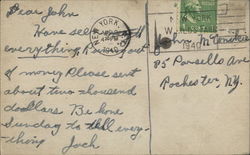 Dear John
Have seen
everything. Run out
of money. Please sent
about two thousend
dodlars. Be home
Sunday to tell every-
thing
Jack
NEW YORK, N.Y.
1940
John
85 Parsells Ave
Rochester, N.Y.